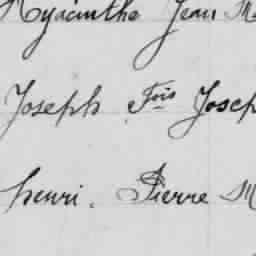 Hyacinthe Jean M
Joseph Fois Josep
henri. Pierre M